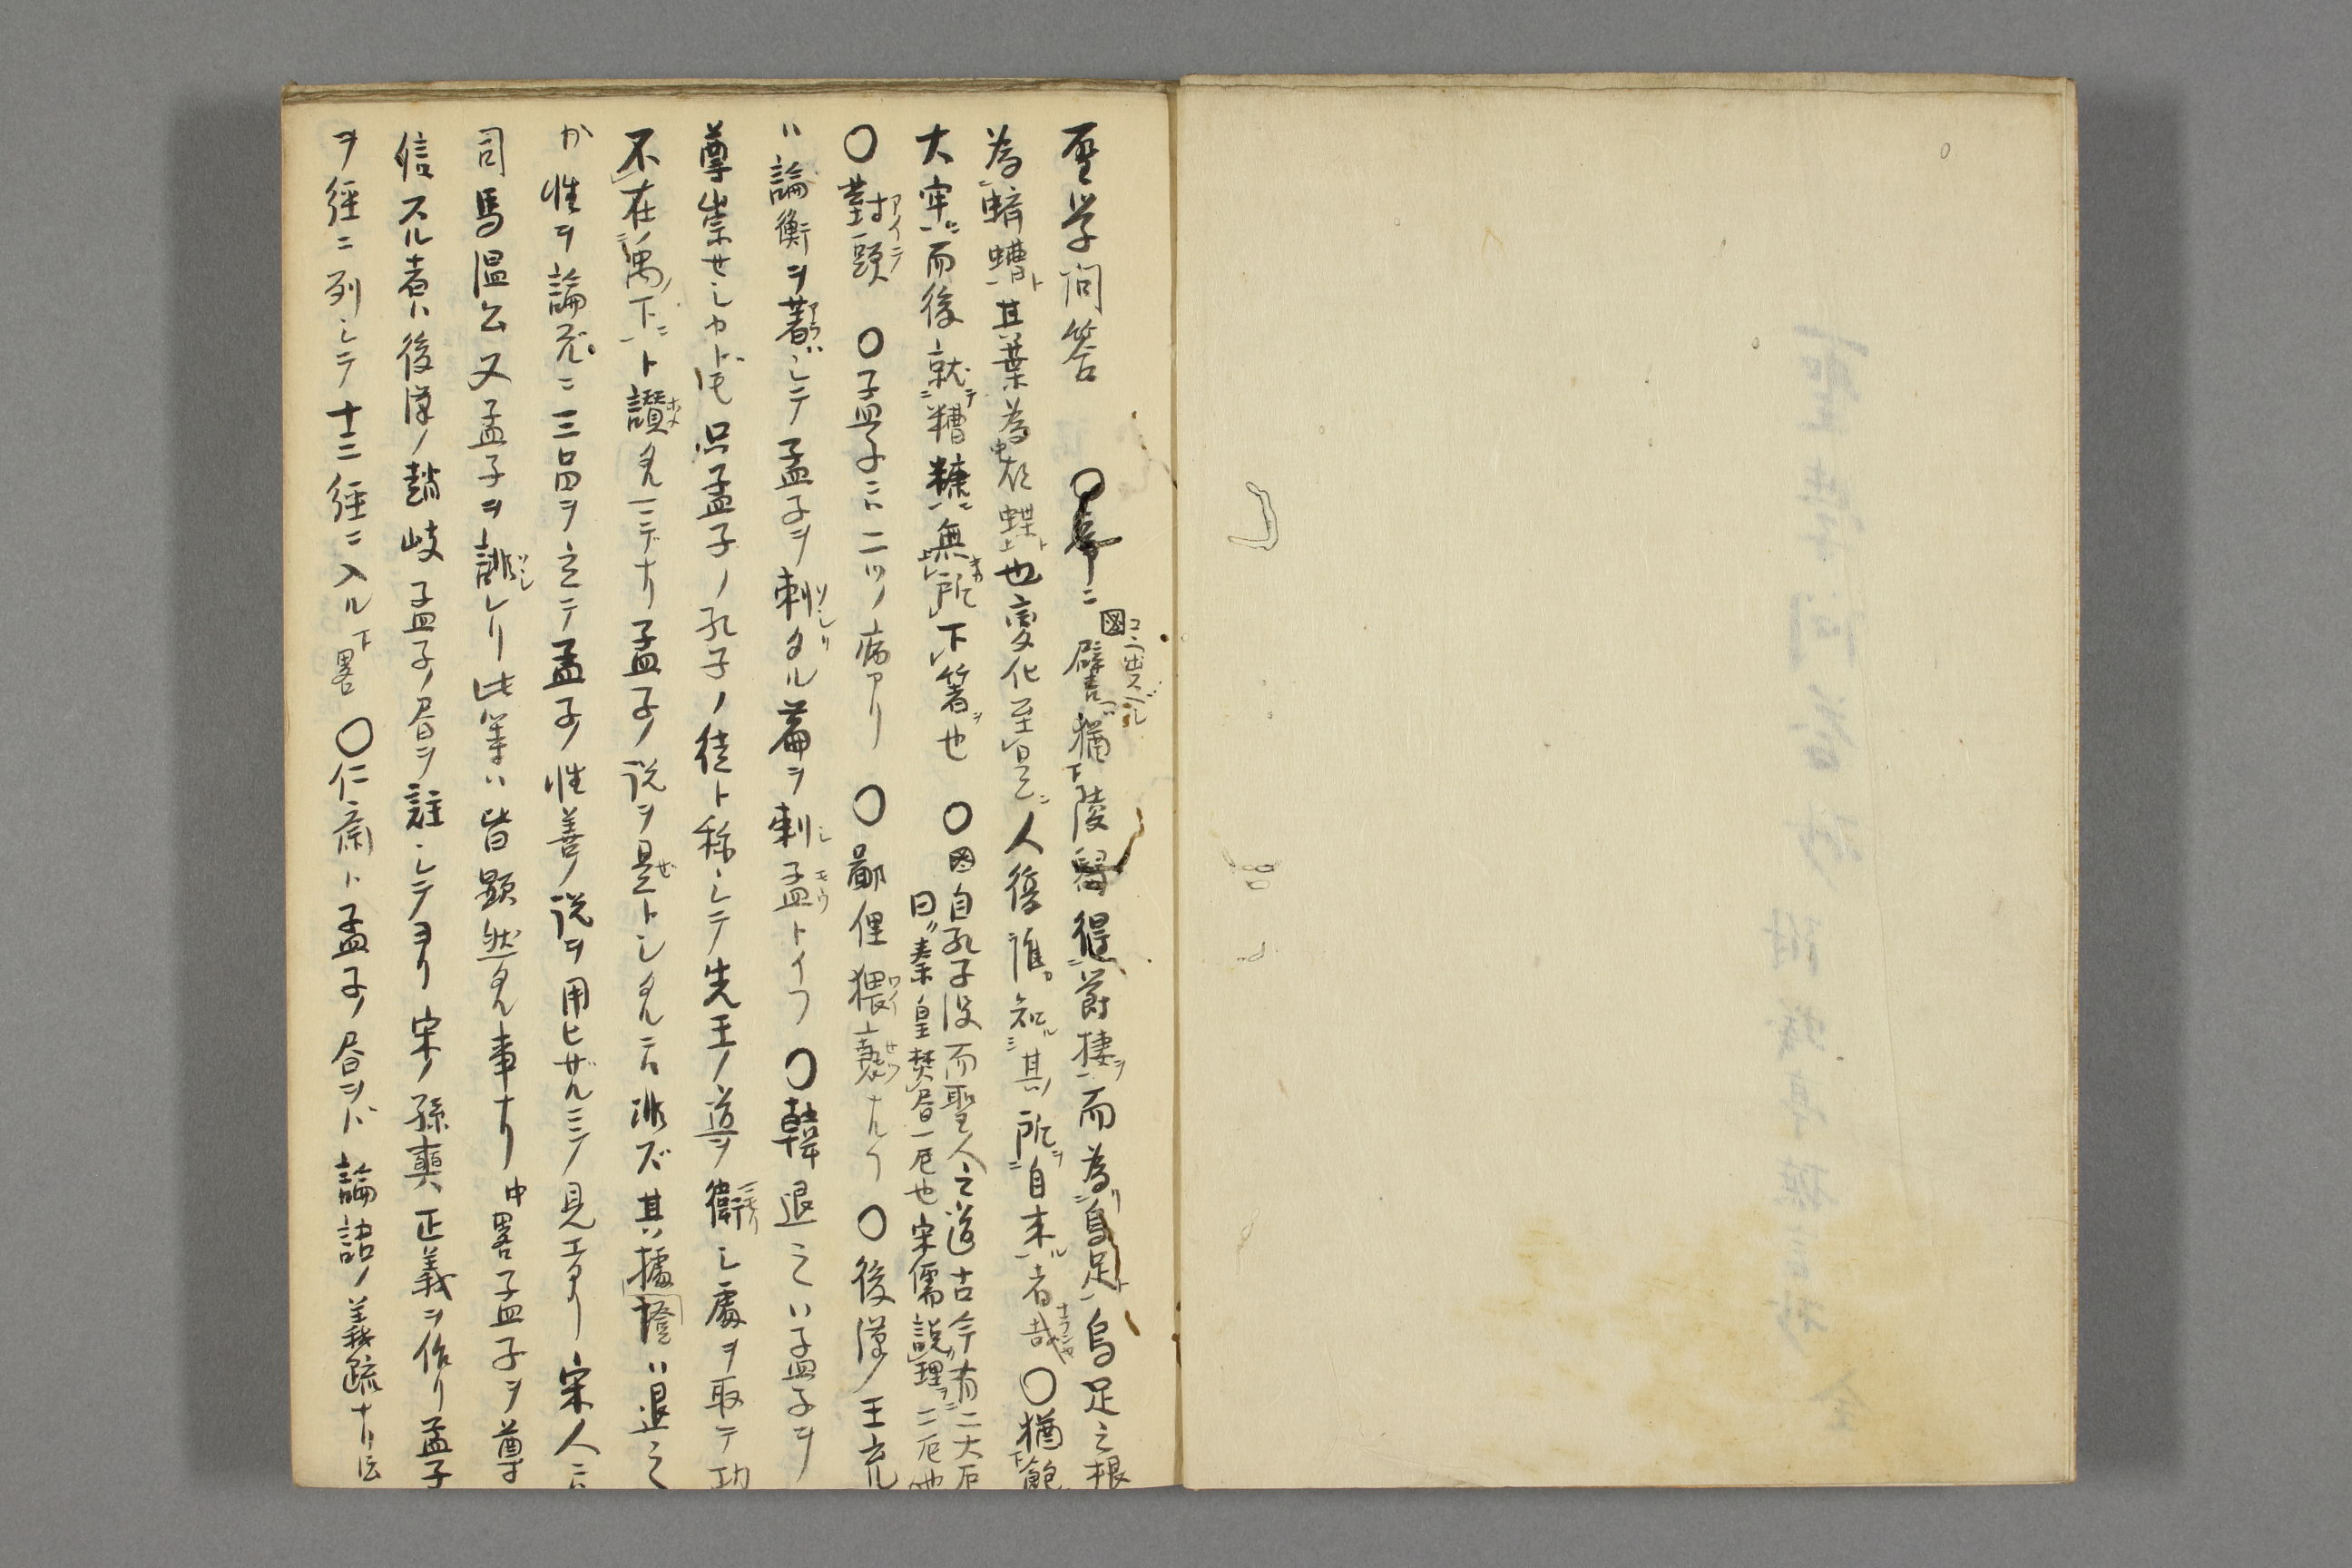 聖学問答 〇 ニ 譬猶陵舄得欝棲ヲ而為烏足ト烏足之根
為蠐螬ト其葉為胡蝶ト也変化至是ニ人復誰知ル其所ヲ自来ル者哉 〇猶飽
大牢ニ而後就テ糟糠ニ無所下箸ヲ也 〇図自孔子没而聖人之道古今有二大厄
曰秦皇焚書一厄也宋儒説理二厄也
〇對頭アイテ 〇孟子ニハ二ツノ病アリ 〇鄙俚猥褻ナルヿ 〇後漢ノ王充
ハ論衡ヲ著シテ孟子ヲ刺ソシリタル篇ヲ刺孟トイフ 〇韓退之ハ孟子ヲ
尊崇セシカドモ只孟子ノ孔子ノ徒ト称シテ先王ノ道ヲ衛シ処ヲ取テ功
不在禹ノ下ニト讃タルミテナリ孟子ノ説ヲ是トシタルニハ非ズ其據證ハ退之
カ性ヲ論ズルニ三品ヲ立テ孟子ノ性善ノ説ヲ用ヒザルニテ見エタリ宋人ニハ
司馬温公又孟子ヲ誹レリ此等ハ皆顕然タル事ナリ中畧孟子ヲ尊
信スル者ハ後漢ノ趙岐孟子ノ書ヲ註シテヨリ宋ノ孫奭正義ヲ作リ孟子
ヲ経ニ列シテ十三経ニ入ル下畧 〇仁斎ハ孟子ノ書ヲバ論語ノ義疏ナリト云